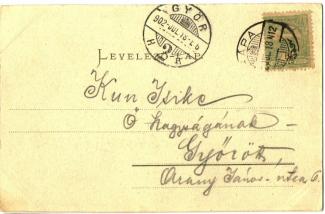 GYŐR
902 JUL 18
LEVELEZŐ-LAP
PÁPA
Kun Icike
Ő nagyságának
Győrött,
Arany János-utca 6.